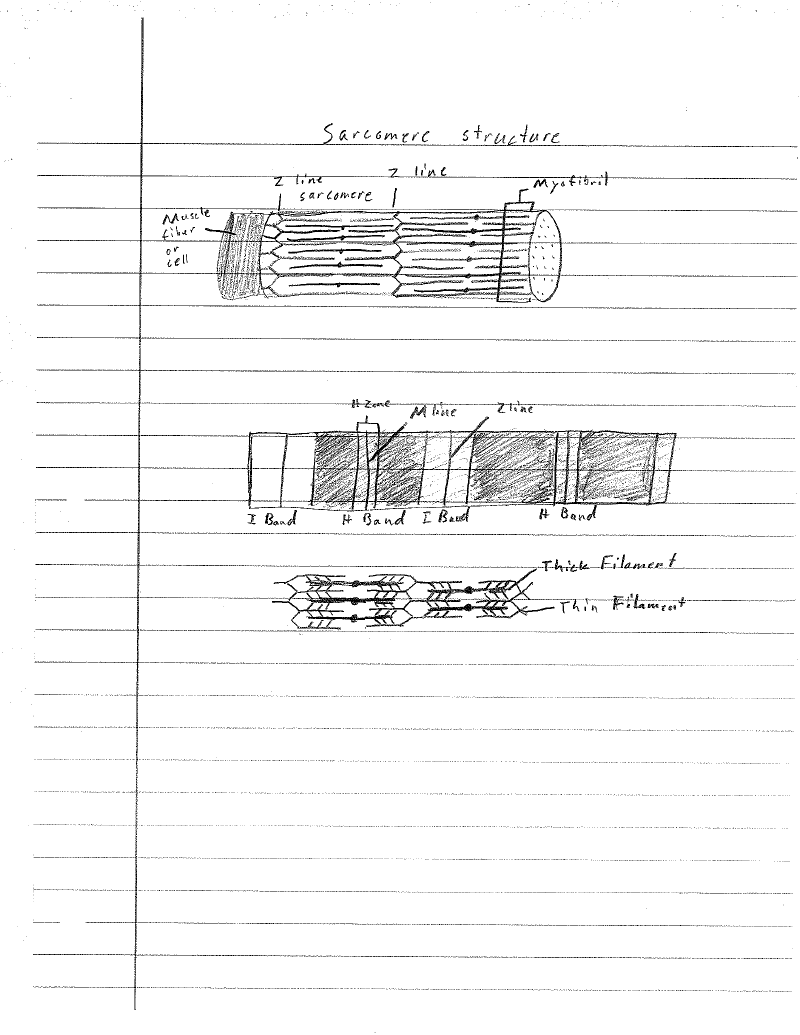 Sarcomere structure
Z line
Z line
sarcomere
Myofibril
Muscle
fiber
or
cell
H Zone
M line
Z line
I Band
H Band
I Band
H Band
Thick Filament
Thin Filament